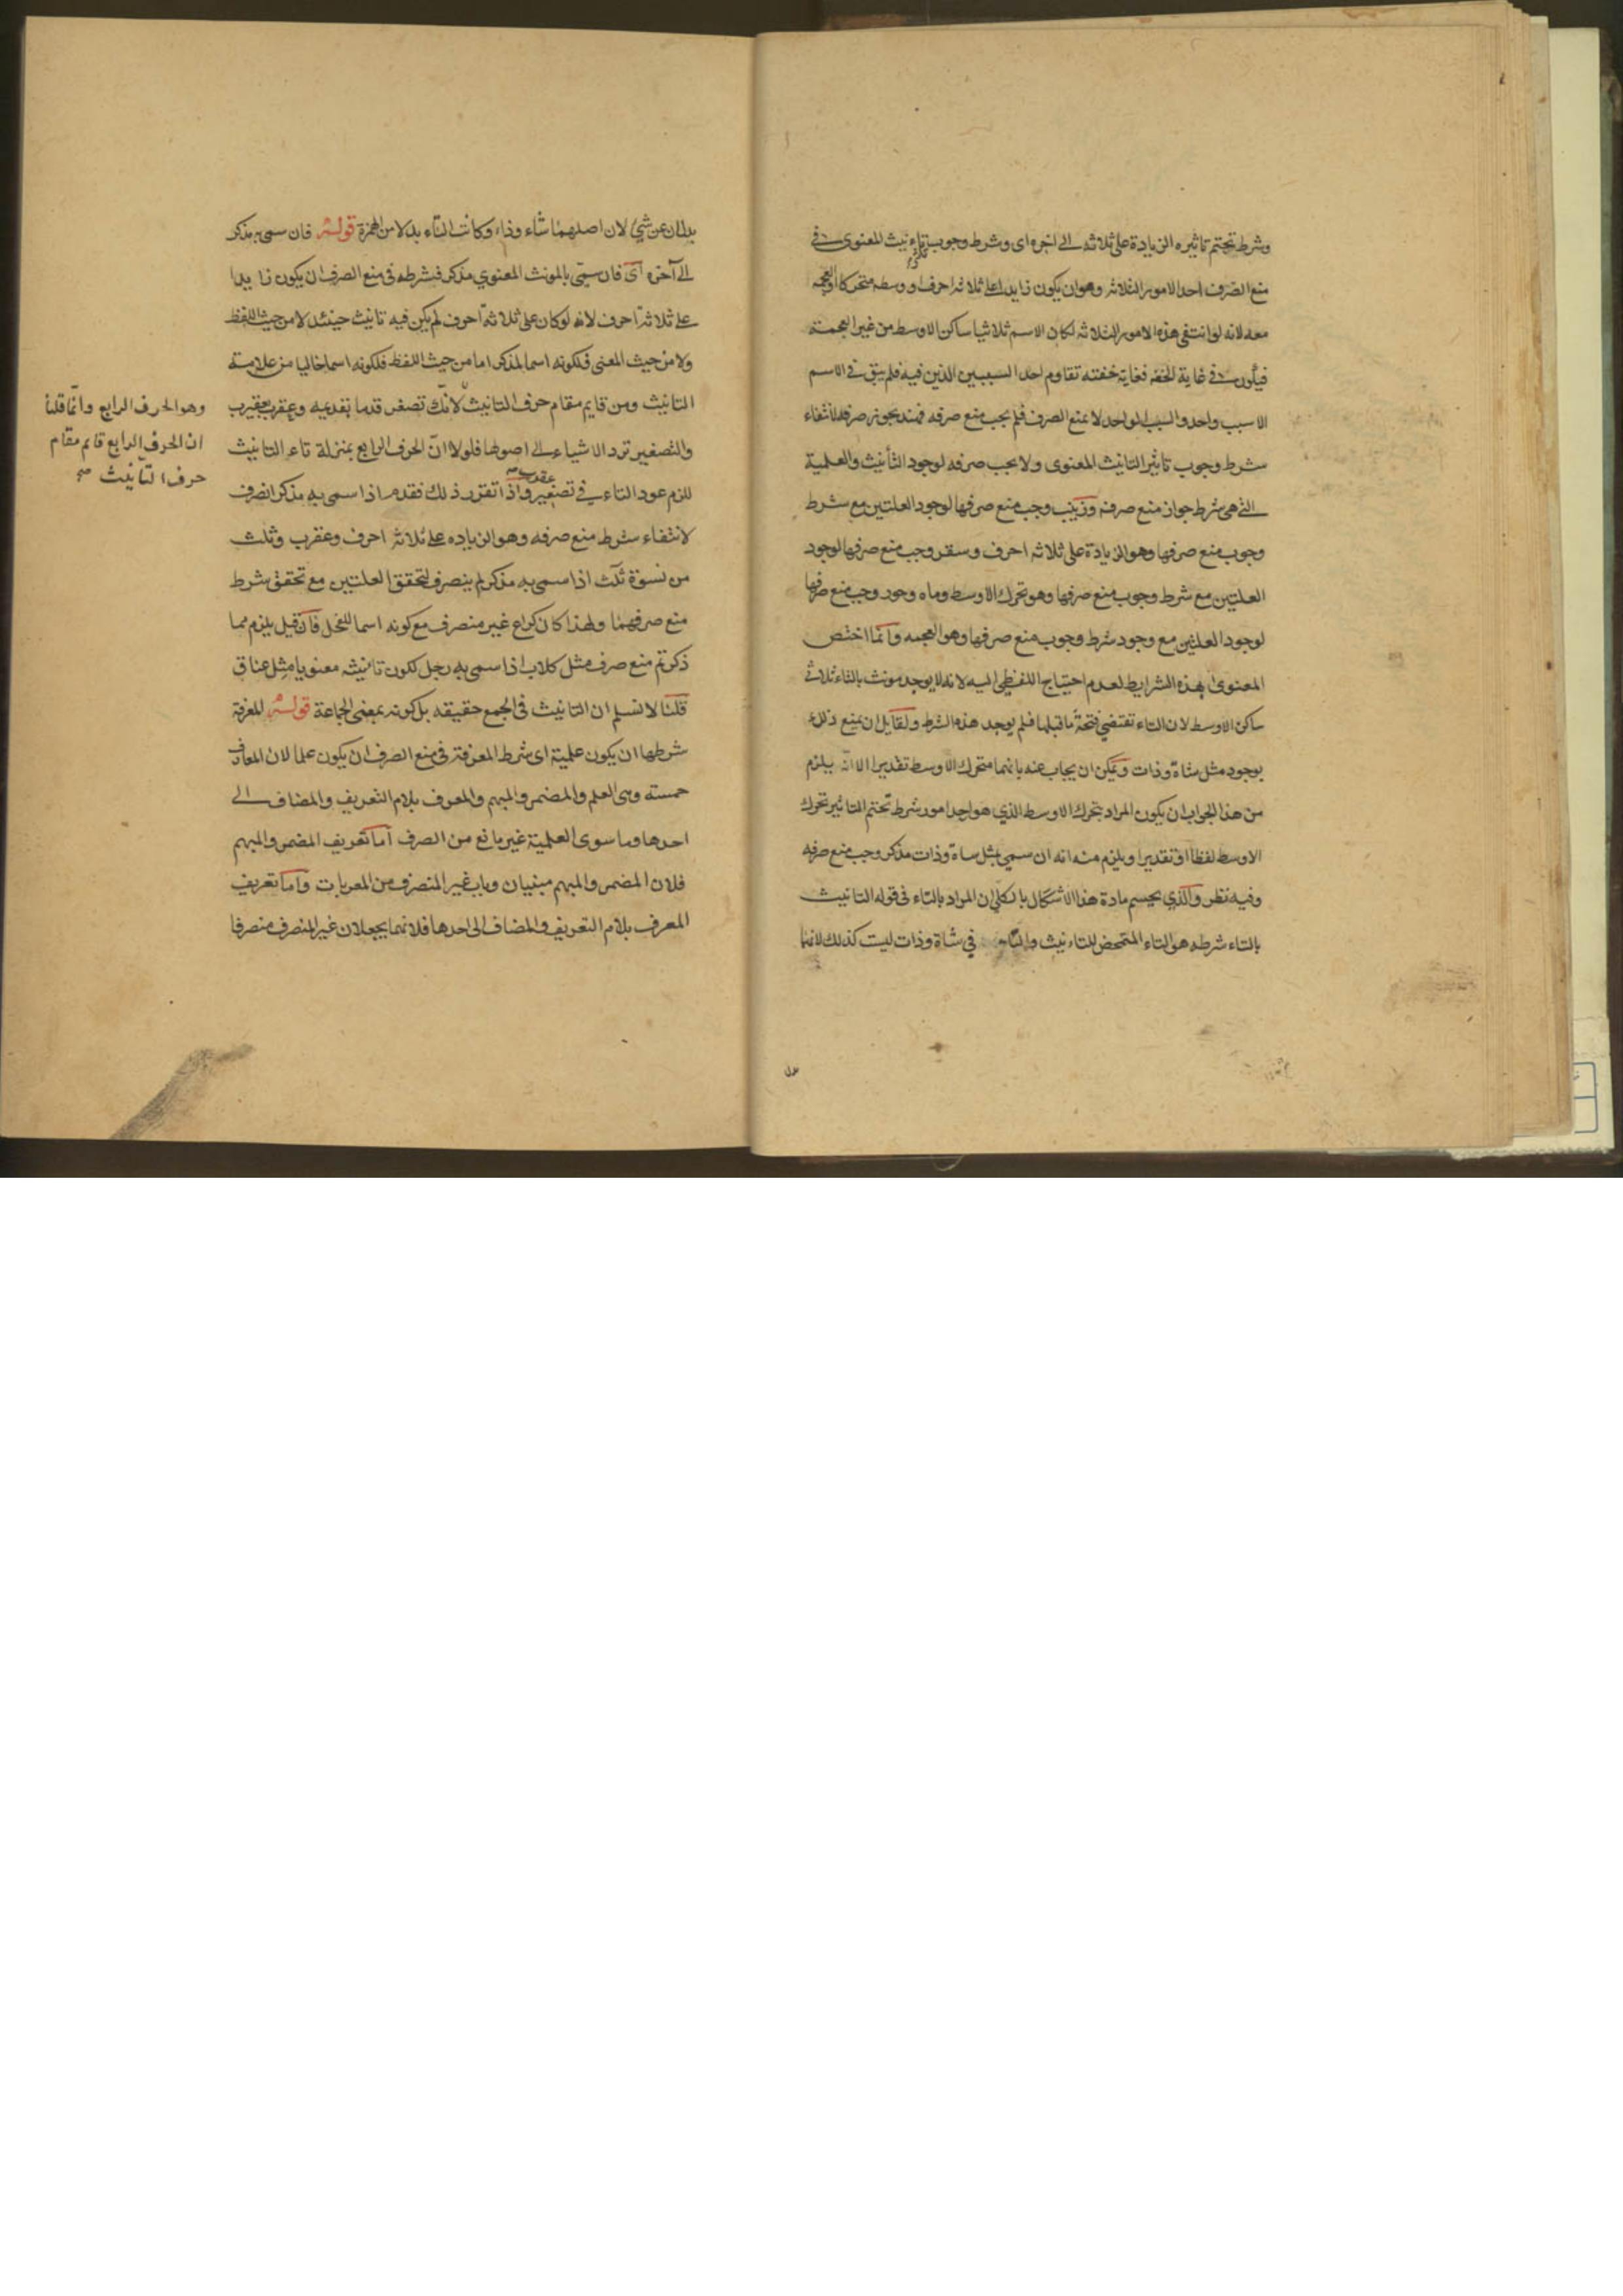 وشرط تحتم تاثيره الزيادة على ثلاثه الى اخره اى وشرط وجوب تاثير التانيث المعنوى فى
منع الصّرف احد الامور الثلاثه وهو ان يكون زايدا على ثلاثه احرف او وسطه متحركا او العجمه
معه لانه لو انتفى هذه الامور الثلاثه لكان الاسم ثلاثيا ساكن الاوسط من غير العجمة
فيكون فى غاية الخفه فغاية خفته تقاوم احد السببين الذين فيه فلم يبق فى الاسم
الا سبب واحد والسبب الواحد لا يمنع الصرف فلم يجب منع صرفه فهند يجوز صرفه لانتفاء
شرط وجوب تاثير التانيث المعنوى ولا يجب صرفه لوجود التأنيث والعلمية
التى هى شرط جواز منع صرفه وزينب وجب منع صرفها لوجود العلتين مع شرط
وجوب منع صرفها وهو الزيادة على ثلاثه احرف وسقر وجب منع صرفها لوجود
العلتين مع شرط وجوب منع صرفها وهو تحرك الاوسط وماه وجور وجب منع صرفها
لوجود العلتين مع وجود شرط وجوب منع صرفها وهو العجمه وانما اختص
المعنوى بهذه الشرايط لعدم احتياج اللفظى اليه لانه لا يوجد مونث بالتاء ثلاثى
ساكن الاوسط لان التاء تقتضى فتحة ما قبلها فلم يوجد هذه الشرط ولقايل ان يمنع ذلك
بوجود مثل شاة وذات ويمكن ان يجاب عنه بانهما متحرك الاوسط تقديرا الا انّه يلزم
من هذا الجواب ان يكون المراد بتحرك الاوسط الذي هو احد امور شرط تحتم التاثير تحرك
الاوسط لفظا او تقديرا ويلزم منه انه ان سمي بمثل شاة وذات مذكر وجب منع صرفه
وفيه نظر والّذي يحسم مادة هذا الاشكال بالكلّى ان المراد بالتاء فى قوله التانيث
بالتاء شرطه هو التاء المتمحض للتانيث والتاء فى شاة وذات ليست كذلك لانهما
بدلان عن شيئ لان اصلهما شاء وذاء وكانت التاء بدلا من الهمزة قوله فان سمى به مذكر
الى آخره اى فان سمّى بالمونث المعنوي مذكر فشرطه فى منع الصرف ان يكون زايدا
على ثلاثة احرف لانه لو كان على ثلاثة احرف لم يكن فيه تانيث حينئذ لا من حيث اللفظ
ولا من حيث المعنى فلكونه اسما لمذكر اما من حيث اللفظ فلكونه اسما خاليا من علامة
التانيث ومن قايم مقام حرف التانيث لانّك تصغر قدما بقديمه وعقرب بعقيرب
وهو الحرف الرابع وانّما قلنا
ان الحرف الرابع قايم مقام
حرف التانيث صح
والتصغير ترد الاشياء الى اصولها فلولا انّ الحرف الرابع بمنزلة تاء التانيث
للزم عود التاء فى تصغير عقرب واذا تقرر ذلك فقدم اذا سمى به مذكر انصرف
لانتفاء شرط منع صرفه وهو الزياده على ثلاثه احرف وعقرب وثلث
من نسوة ثلث اذا سمى به مذكر لم ينصرف لتحقق العلتين مع تحقق شرط
منع صرفهما ولهذا كان كراع غير منصرف مع كونه اسما للنخل فان قيل يلزم مما
ذكرتم منع صرف مثل كلاب اذا سمى به رجل لكون تانيثه معنويا مثل عناق
قلنا لا نسلم ان التانيث فى الجمع حقيقه بل كونه بمعنى الجماعة قوله المعرفة
شرطها ان يكون علمية اى شرط المعرفة فى منع الصرف ان يكون علما لان المعارف
خمسته وهى العلم والمضمر والمبهم والمعرف بلام التعريف والمضاف الى
احدها وما سوى العلمية غير مانع من الصرف اما تعريف المضمر والمبهم
فلان المضمر والمبهم مبنيان وباب غير المنصرف من المعربات واما تعريف
المعرف بلام التعريف والمضاف الى احدها فلانهما يجعلان غير المنصرف منصرفا